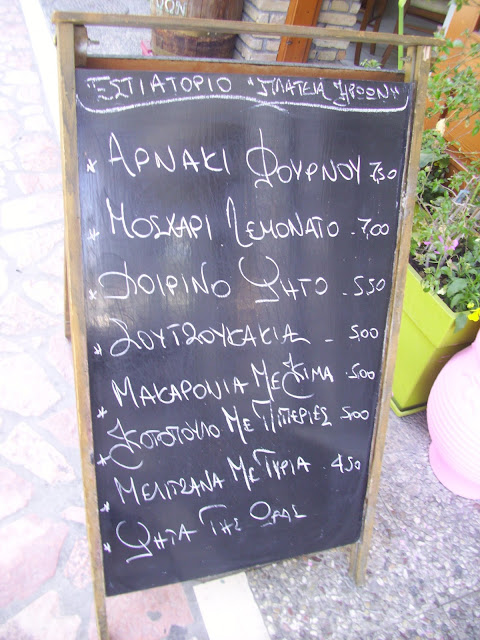 ΕΣΤΙΑΤΟΡΙΟ "ΠΛΑΤΕΙΑ ΗΡΩΩΝ"
* ΑΡΝΑΚΙ ΦΟΥΡΝΟΥ 7,50
* ΜΟΣΧΑΡΙ ΛΕΜΟΝΑΤΟ . 7,00
* ΧΟΙΡΙΝΟ ΨΗΤΟ . 5,50
* ΣΟΥΤΖΟΥΚΑΚΙΑ - 5,00
* ΜΑΚΑΡΟΝΙΑ ΜΕ ΚΙΜΑ . 5,00
* ΚΟΤΟΠΟΥΛΟ ΜΕ ΠΙΠΕΡΙΕΣ 5,00
* ΜΕΛΙΤΖΑΝΑ ΜΕ ΤΥΡΙΑ . 4,50
* ΨΗΤΑ ΤΗΣ ΩΡΑΣ